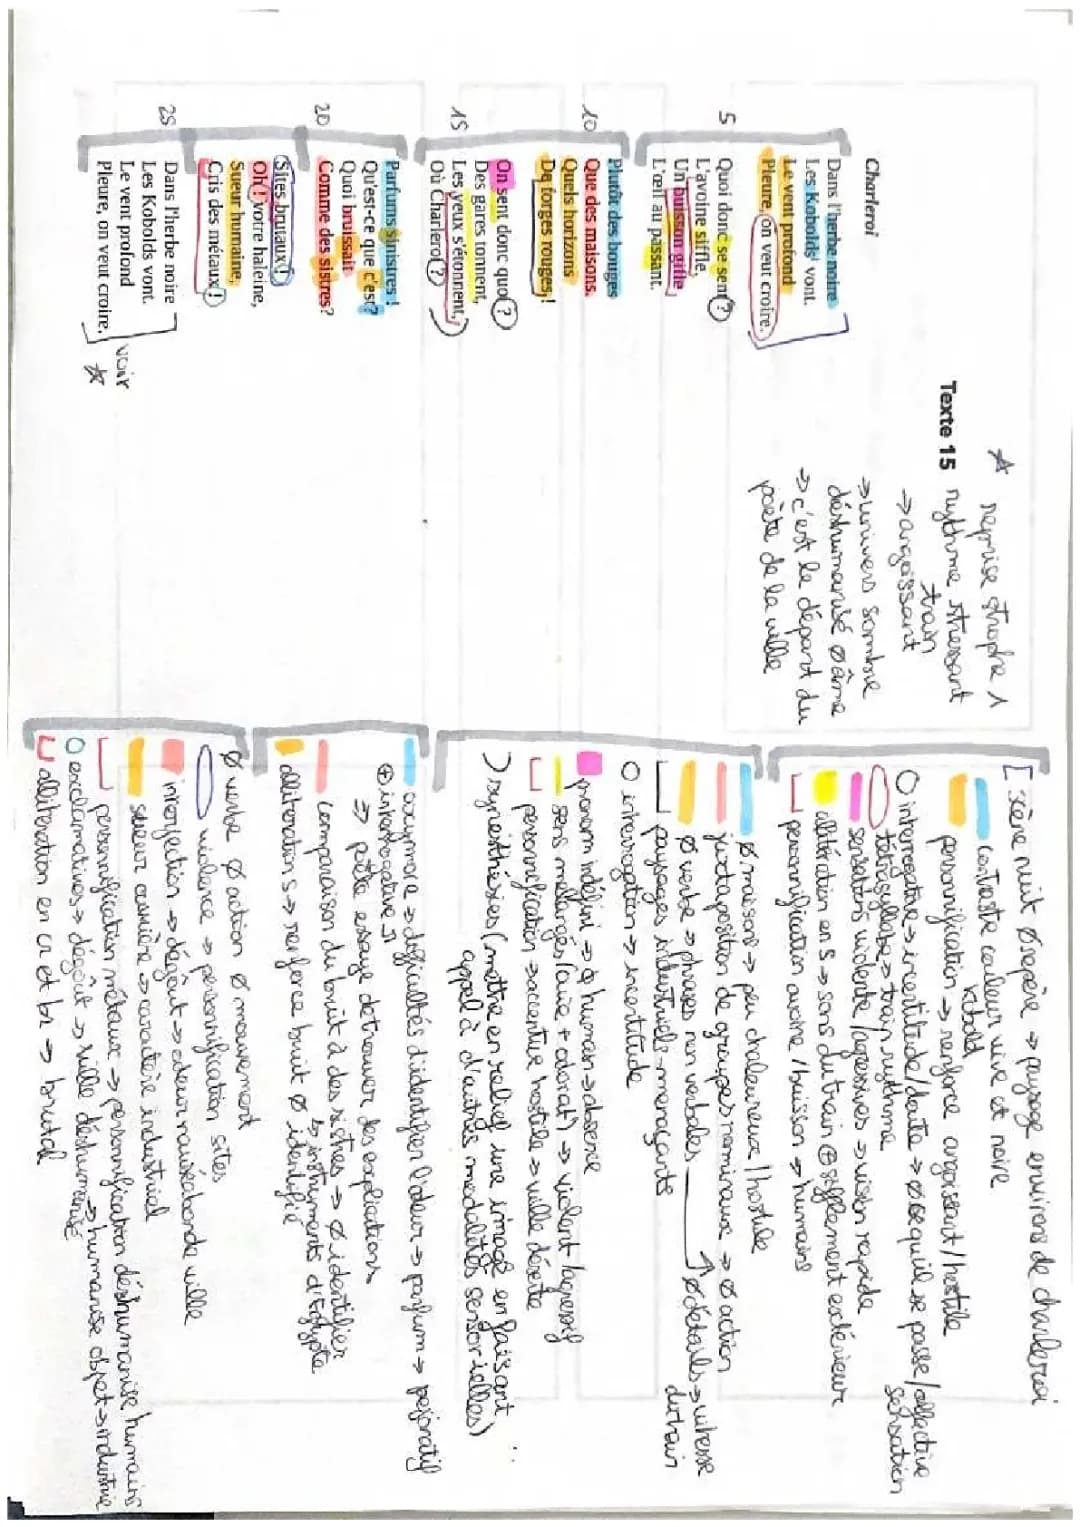 ★ reprise strophe 1
Texte 15 rythme stressant
train
→ angoissant
→ univers sombre
déshumanisé ø âme
→ c'est le départ du
poète de la ville
Charleroi
Dans l'herbe noire
Les Kobolds vont.
Le vent profond
Pleure, on veut croire.
5 Quoi donc se sent ?
L'avoine siffle.
Un buisson gifle
L'œil au passant.
Plutôt des bouges
10 Que des maisons.
Quels horizons
De forges rouges !
On sent donc quoi ?
Des gares tonnent,
15 Les yeux s'étonnent,
Où Charleroi ?
Parfums sinistres !
Qu'est-ce que c'est ?
Quoi bruissait
20 Comme des sistres ?
Sites brutaux !
Oh ! votre haleine,
Sueur humaine,
Cris des métaux !
25 Dans l'herbe noire
Les Kobolds vont.
Le vent profond
Pleure, on veut croire.
voir
★
[ scène nuit ø repère → paysage environs de charleroi
contraste couleur vive et noire
kobold
personnification → renforce angoissant / hostile
O interrogative → incertitude / doute → ø ce qu'il se passe / olfactive
sensation
tétrasyllabe → train rythme
sensations violente / agressives → vision rapide
allitération en s → sons du train ⊕ sifflement extérieur
personnification avoine / buisson → humains
ø maisons → peu chaleureux / hostile
juxtaposition de groupes nominaux → ø action
ø verbe → phrases non verbales ↑ ø détails → vitesse
du train
paysages industriels menaçants
O interrogation → incertitude
pronom indéfini → ø humain → absence
sens mélangés (ouïe + odorat) → violent / agressif
personnification → accentue hostile → ville déserte
) synesthésies (mettre en relief une image en faisant
appel à d'autres modalités sensorielles)
oxymore → difficultés d'identifier l'odeur → parfum → péjoratif
⊕ interrogative
⇒ poète essaye de trouver des explications
comparaison du bruit à des sistres → ø identifier
↳ instruments d'Egypte
allitération s → renforce bruit ø identifié
ø verbe ø action ø mouvement
violence → personnification sites
interjection → dégoût → odeur nauséabonde ville
sueur ouvrière → caractère industriel
personnification métaux → personnification déshumanise humains
→ humanise objet → industrie
O exclamatives → dégoût → ville déshumanisé
allitération en cr et br → brutal